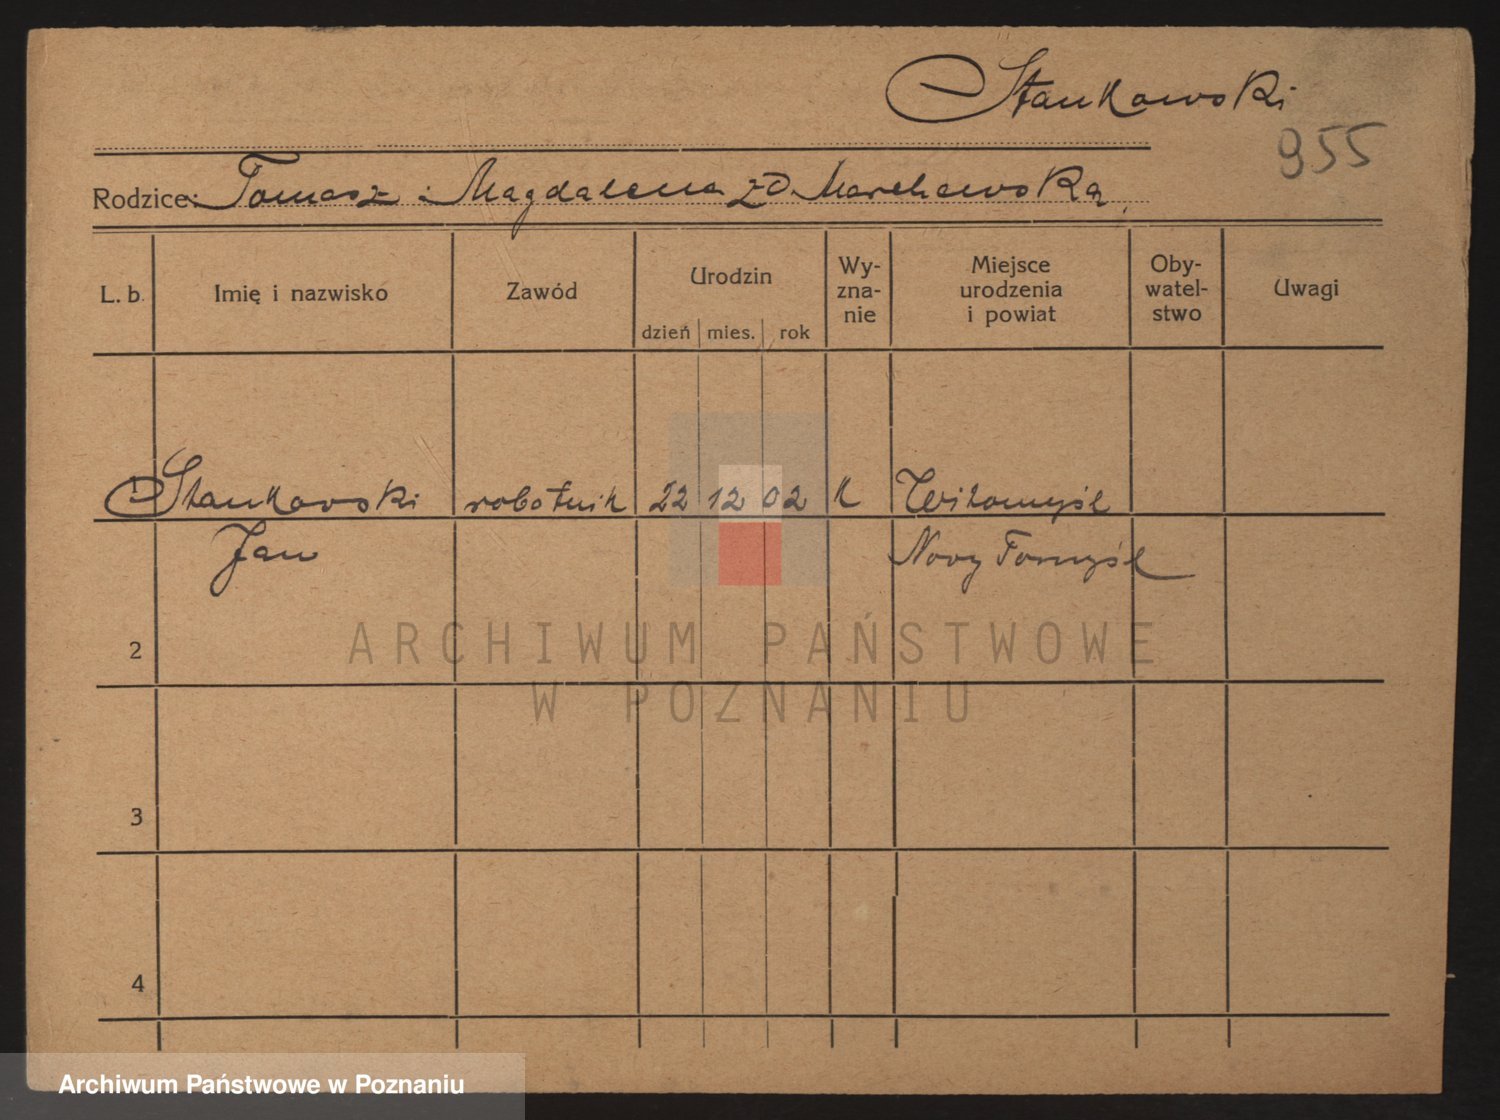 Stankowski
955
Rodzice: Tomasz i Magdalena zd. Marchewska
L. b. Imię i nazwisko Zawód Urodzin Wy-zna-nie Miejsce urodzenia i powiat Oby-watel-stwo Uwagi
dzień mies. rok
1 Stankowski robotnik 22 12 02 K Witomyśl
Jan Nowy Tomyśl
2
3
4
ARCHIWUM PAŃSTWOWE
W POZNANIU
Archiwum Państwowe w Poznaniu